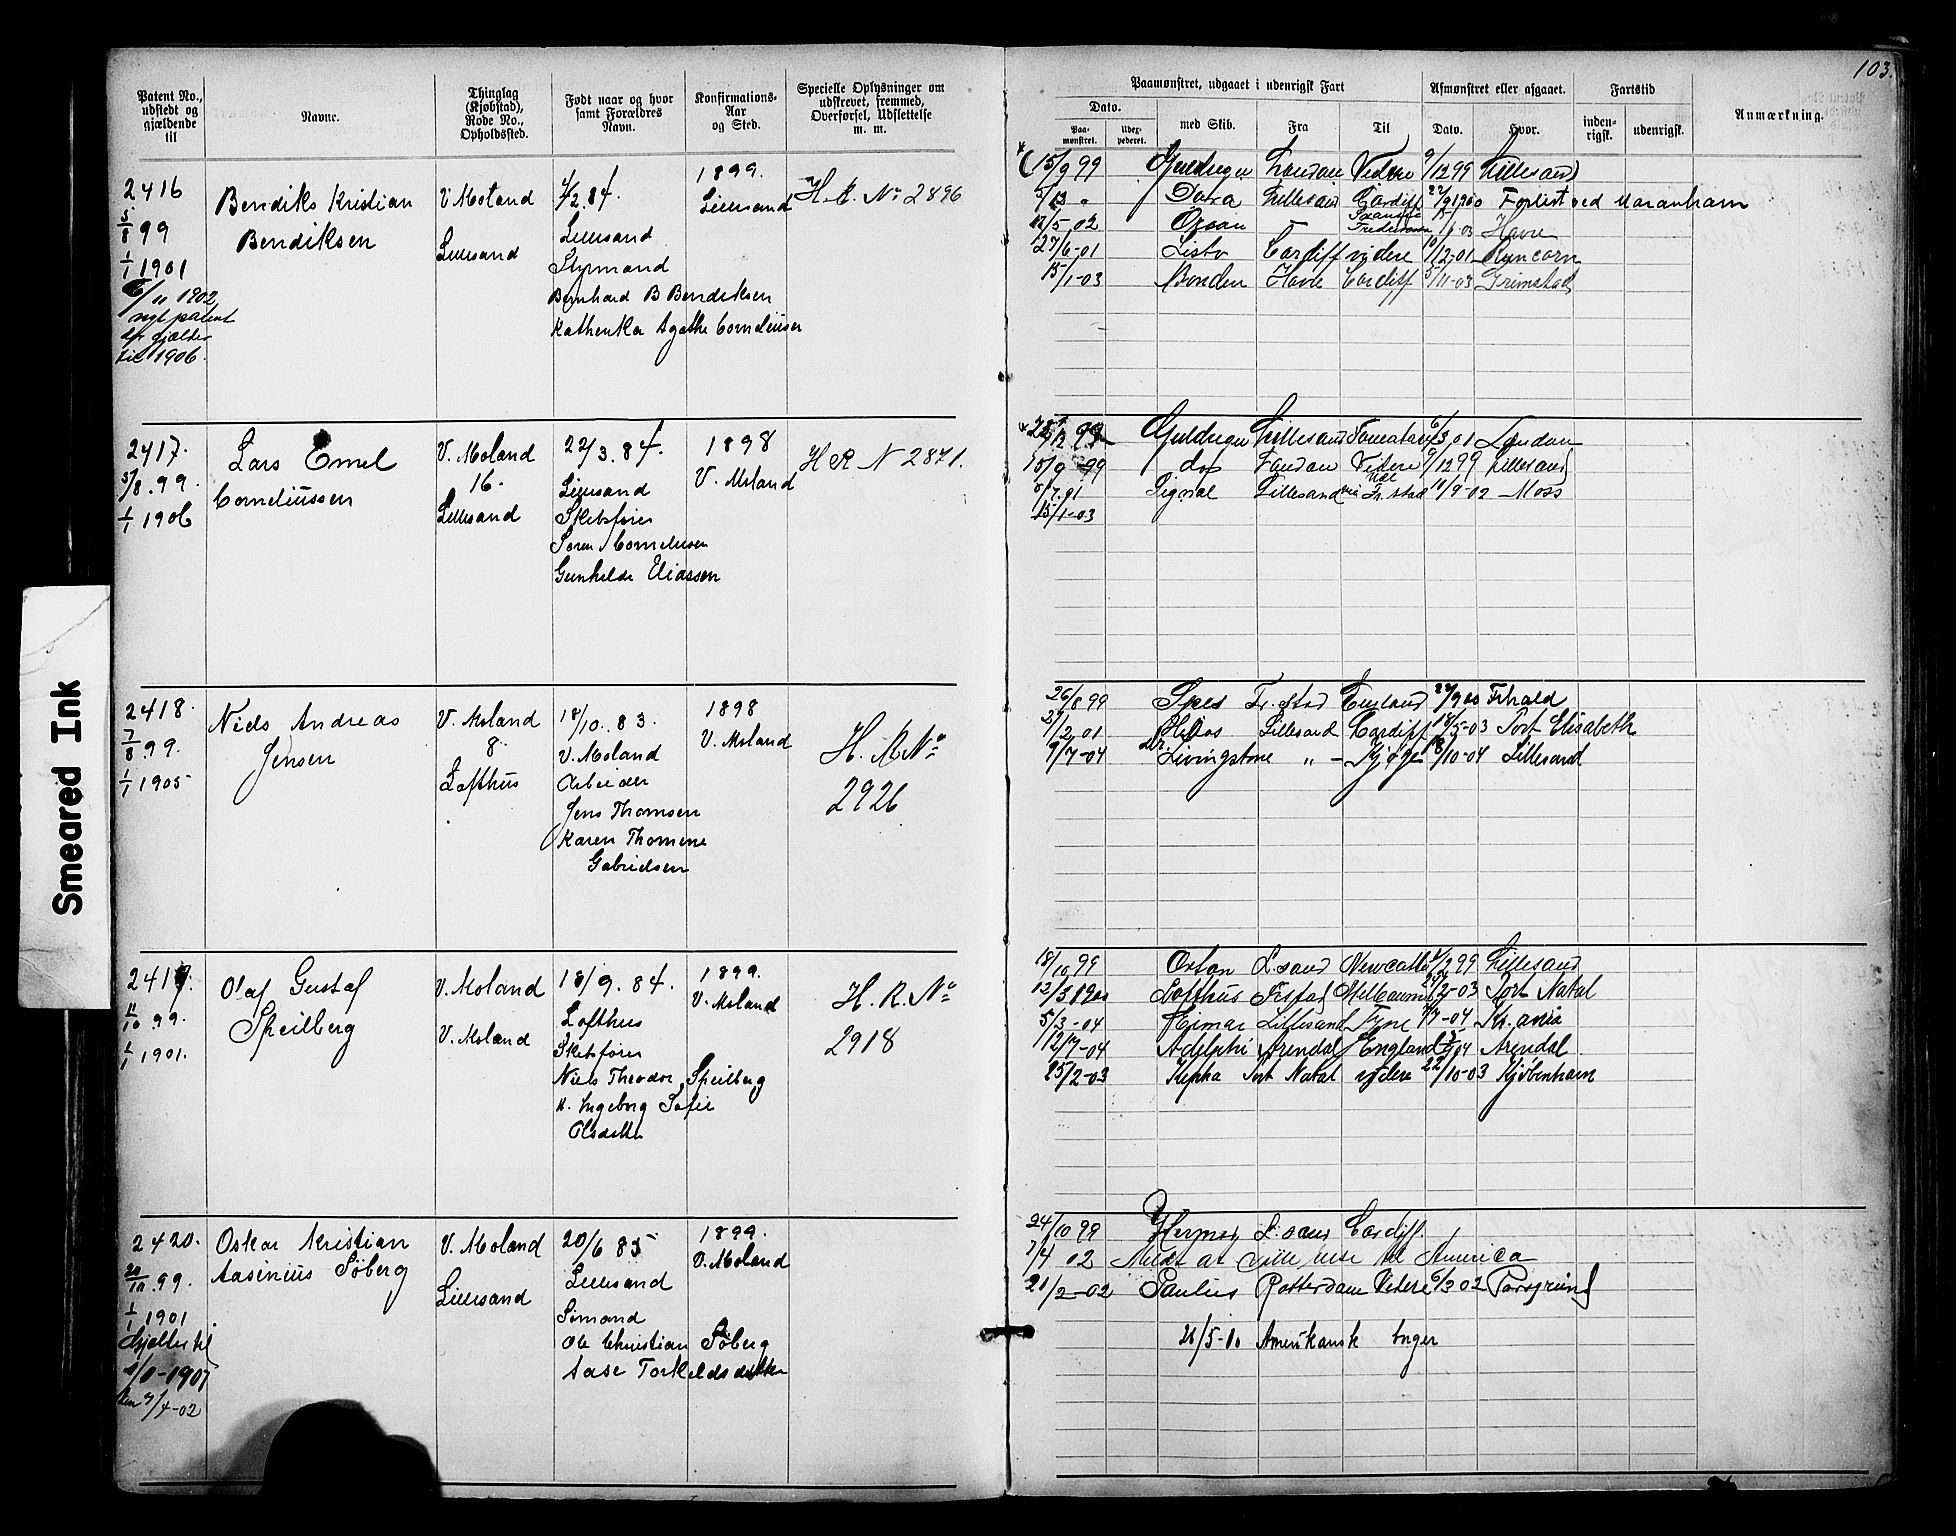 103.
Patent No., udstedt og gjældende til
Navne.
Thinglag (Kjøbstad), Rode No., Opholdssted.
Født naar og hvor samt Forældres Navn.
Konfirmations-Aar og Sted.
Specielle Oplysninger om udskrevet, fremmed, Overførsel, Udslettelse m. m.
Paamønstret, udgaaet i udenrigsk Fart
Afmønstret eller afgaaet.
Fartstid
Anmærkning.
Dato.
Paa-mønstret.
Udex-pederet.
med Skib.
Fra
Til
Dato.
Hvor.
inden-rigsk.
udenrigsk.
2416
5/8 99
1/1 1901
6/11 1902
nyt patent
gjælder
til 1906.
Bendiks Kristian
Bendiksen
V. Moland
Lillesand
4/2.84.
Lillesand
Styrmand
Bernhard B Bendiksen
Kathenka Agathe Corneliussen
1899.
Lillesand
H.R. No 2896
15/9 99 Guldregn London Videre 9/12 99 Lillesand
Dora Lillesand Cardiff 22/9 1900 Forlist ved Maranham
/5-02 Havre
27/6-01 Lista Cardiff videre 10/12-01 Runcorn
15/1-03 Bonden Havre Cardiff 5/11-03 Grimstad
2417.
5/8.99.
1/1 1906
Lars Emil
Corneliussen
V. Moland
16.
Lillesand
22/3.84.
Lillesand
Skibsfører
Søren Corneliussen
Gunhilde Eliassen
1898
V. Moland
H R N 2871.
Guldregn Lillesand 6/3 01 London
15/9 99 do London Videre 9/12 99 Lillesand
8/7.01 Signal Lillesand via Fr.stad 11/9-02 Moss
15/1-03
2418.
7/8 99.
1/1 1905
Niels Andreas
Jensen
V. Moland
8.
Lofthus
18/10.83.
V. Moland
Arbeider
Jens Thomsen
Karen Thomine
Gabrielsen
1898
V. Moland
H. R No
2926
26/8 99 Spes Fr.stad England 27/9 00 Frhald
27/2.01 Helios Lillesand Cardiff 18/5-03 Port Elisabeth
9/7-04 Livingstone " - Kjøge 8/10-04 Lillesand
2419.
11/10 99.
1/1 1901.
Olaf Gustaf
Speilberg
V. Moland
V. Moland
18/9.84.
Lofthus
Skibsfører
Niels Theodor Speilberg
H. Ingeborg Sofie
Olsdatter
1899.
V. Moland
H. R. No
2918
18/10 99 Orton L.sand Newcastle /12 99 Lillesand
12/3 1900 Lofthus Frstad Melbourne /2-03 Port Natal
5/3-04 Heimar Lillesand Tyne /7-04 Kr.ania
12/7-04 Adelphi Arendal England Arendal
25/2-03 Kepha Port Natal videre 22/10-03 Kjøbenhavn
2420.
20/10 99.
1/1 1901.
Gjælder til
1/1-1907
den 7/4-02
Oskar Kristian
Aasinius Søberg
V. Moland
Lillesand
20/6 85
Lillesand
Sømand
Ole Christian Søberg
Aase Torkildsdatter
1899.
V. Moland
24/10 99 Hermod L.sand Cardiff.
7/4 02 Meldt at ville reise til America
21/2-02 Paulus Rotterdam Videre 6/3 02 Porsgrund
26/5-10 Amerikansk borger
Smeared Ink